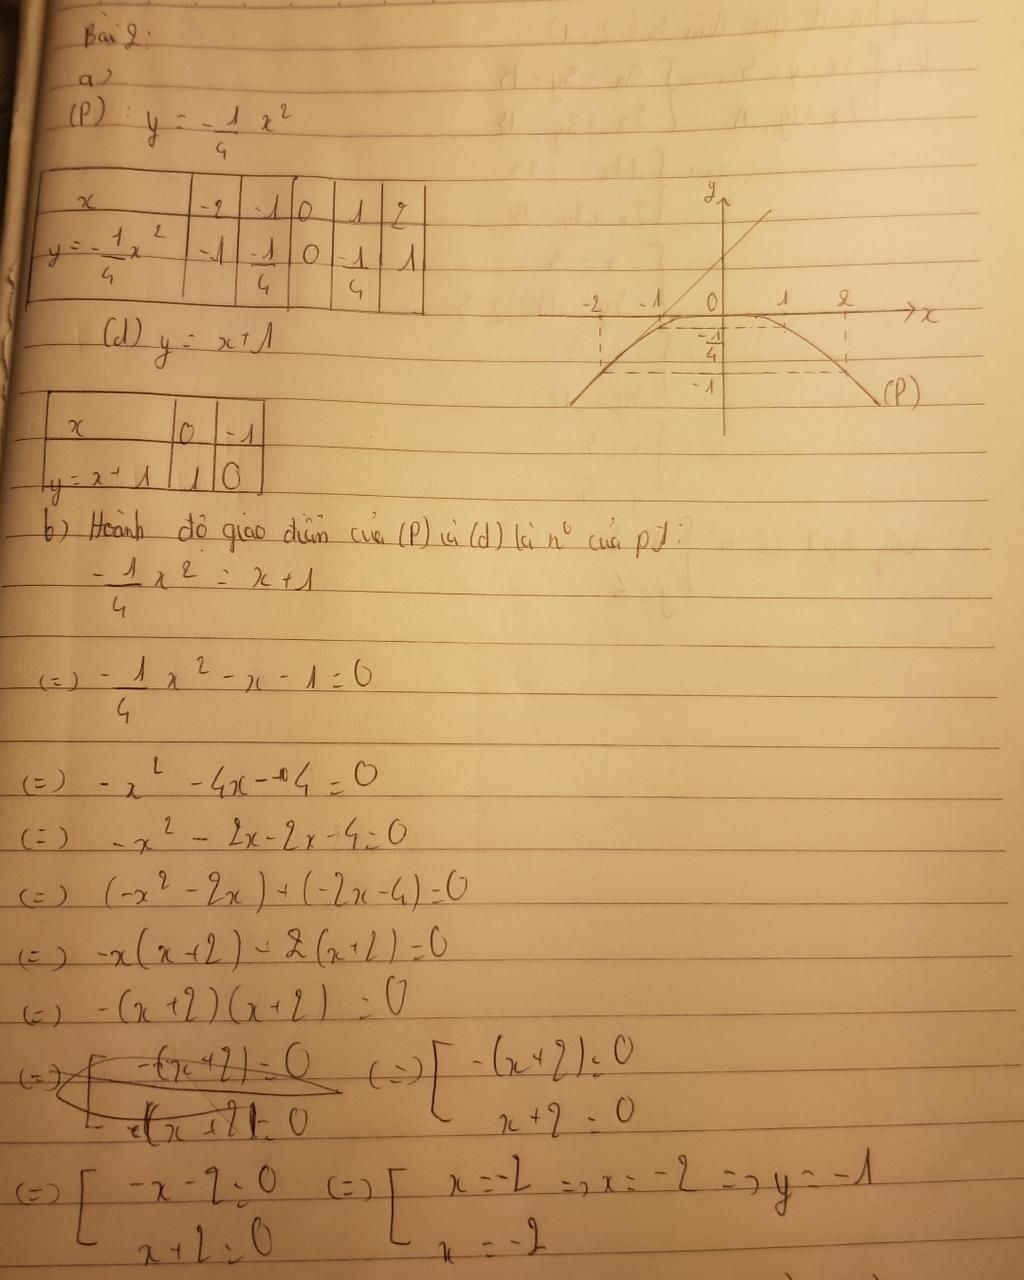 Bài 2:
a)
(P) : y = -1/4 x²
x -2 -1 0 1 2
y = -1/4 x² -1 -1/4 0 -1/4 1
y
-2 -1 0 1 2 x
-1/4
-1
(P)
(d) y = x+1
x 0 -1
y = x + 1 1 0
b) Hoành độ giao điểm của (P) và (d) là n⁰ của pt:
-1/4 x² = x+1
(=) -1/4 x² - x - 1 = 0
(=) -x² - 4x - 4 = 0
(=) -x² - 2x - 2x - 4 = 0
(=) (-x² - 2x) + (-2x - 4) = 0
(=) -x(x+2) - 2(x+2) = 0
(=) -(x+2)(x+2) = 0
(=) [ -(x+2) = 0 (=) [ -(x+2) = 0
(x+2) = 0 x+2 = 0
(=) [ -x-2 = 0 (=) [ x = -2 => x = -2 => y = -1
x+2 = 0 x = -2